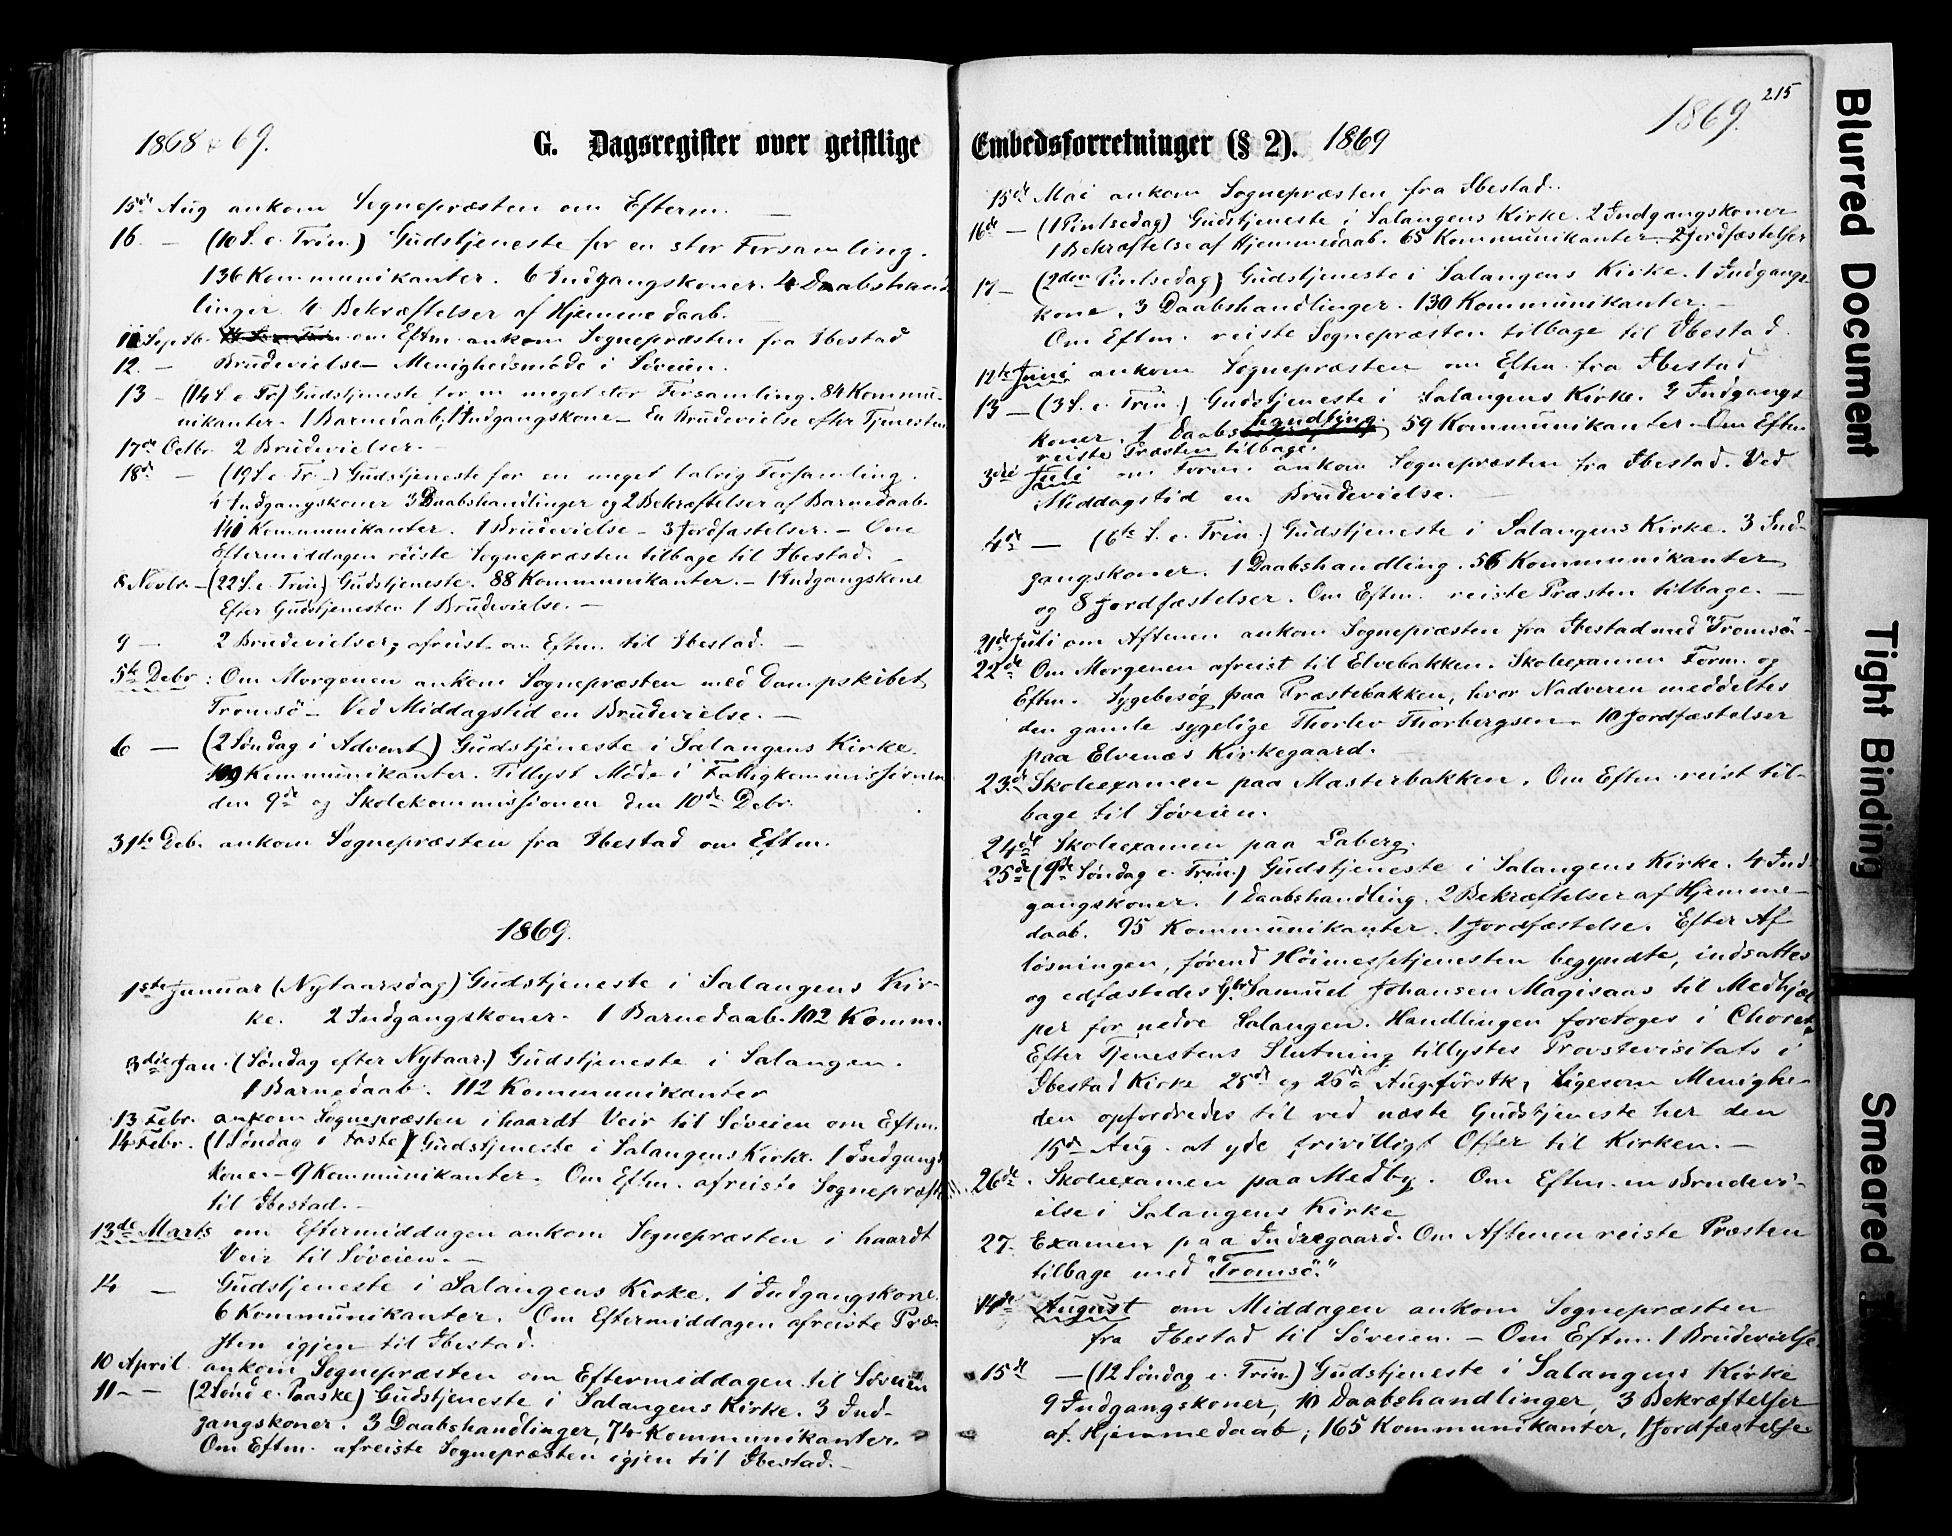 1868 & 69.
G. Dagsregister over geistlige
15de Aug ankom Sognepræsten om Efterm. —
16. — (10 S. e. Trin.) Gudstjeneste for en stor Forsamling.
136 Kommunikanter. 6 Indgangskoner. 4 Daabshand-
linger. 4 Bekræftelser af Hjemmedaab. —
11 Septbr. om Eftm. ankom Sognepræsten fra Ibestad
12. — Brudevielse — Menighedsmøde i Søveien.
13 — (14 S. e Tr) Gudstjeneste for en meget stor Forsamling. 84 Kommu-
nikanter. 1 Barnedaab, 1 Indgangskone — En Brudevielse efter Tjenesten
17de Octbr. 2 Brudevielser. —
18de — (19 S. e. Tr.) Gudstjeneste for en meget talrig Forsamling.
Indgangskoner 3 Daabshandlinger og 2 Bekræftelser af Barnedaab.
140 Kommunikanter. 1 Brudevielse — 3 Jordfæstelser. — Om
Eftermiddagen reiste Sognepræsten tilbage til Ibestad. —
8 Novbr. — (22 S. e. Trin) Gudstjeneste. 88 Kommunikanter. — 1 Indgangskone
Efter Gudstjenesten 1 Brudevielse. —
9 — 2 Brudevielser, afreist om Eftm. til Ibestad. —
5te Debr : Om Morgenen ankom Sognepræsten med Dampskibet
Tromsö — Ved Middagstid en Brudevielse. —
6 — (2 Søndag i Advent) Gudstjeneste i Salangens Kirke.
109 Kommunikanter. Tillyst Møde i Fattigkommissionen
den 9de og Skolekommissionen den 10de Debr.
31te Deb. ankom Sognepræsten fra Ibestad om Eftm.
1869.
1ste Januar (Nytaarsdag) Gudstjeneste i Salangens Kir-
ke. 2 Indgangskoner. 1 Barnedaab. 102 Komm.
3die Jan. (Søndag efter Nytaar.) Gudstjeneste i Salangen.
1 Barnedaab. 112 Kommunikanter
13 Febr. ankom Sognepræsten i haardt Veir til Søveien om Eftm.
14 Febr. (1 Søndag i Faste) Gudstjeneste i Salangens Kirke. 1 Indgangs
kone — 9 Kommunikanter. Om Eftm. afreiste Sognepræst
til Ibestad. —
13de Marts om Eftermiddagen ankom Sognepræsten i haardt
Veir til Søveien. —
14 — Gudstjeneste i Salangens Kirke. 1 Indgangskone.
6 Kommunikanter. Om Eftermiddagen afreiste Præ-
sten igjen til Ibestad.
10 April ankom Sognepræsten om Eftermiddagen til Søveien
11 — — (2 Sønd e. Paaske) Gudstjeneste i Salangens Kirke. 3 Ind-
gangskoner. 3 Daabshandlinger, 74 Kommunikanter.
Om Eftm. afreiste Sognepræsten igjen til Ibestad. —
215
1869.
Embedsforretninger (§ 2). 1869
15de Mai ankom Sognepræsten fra Ibestad.
16de — (1 Pintsedag) Gudstjeneste i Salangens Kirke. 2 Indgangskoner
1 Bekræftelse af Hjemmedaab. 65 Kommunikanter. 2 Jordfæstelser
17 — (2den Pintsedag) Gudstjeneste i Salangens Kirke. 1 Indgangs-
kone, 3 Daabshandlinger. 130 Kommunikanter. —
Om Eftm. reiste Sognepræsten tilbage til Ibestad.
12te Juni ankom Sognepræsten om Eftm. fra Ibestad
13 — (3 S. e. Trin.) Gudstjeneste i Salangens Kirke. 3 Indgangs-
koner. 1 Daabshandling. 59 Kommunikanter. Om Eftm
reiste Præsten tilbage.
3die Juli om Form. ankom Sognepræsten fra Ibestad. Ved
Middagstid en Brudevielse.
4de — (6te S. e. Trin.) Gudstjeneste i Salangens Kirke. 3 Ind-
gangskoner. 1 Daabshandling. 56 Kommunikanter
og 8 Jordfæstelser. Om Eftm. reiste Præsten tilbage. —
21de Juli om Aftenen ankom Sognepræsten fra Ibestad med "Tromsö"
22de Om Morgenen afreist til Elvebakken. Skoleexamen Form. og
Eftm. Sygebesøg paa Præstebakken, hvor Nadveren meddeltes
den gamle sygelige Thorlev Thorbergsen. 10 Jordfæstelser
paa Elvenæs Kirkegaard.
23de Skoleexamen paa Masterbakken. Om Eftm. reist til-
bage til Søveien.
24de Skoleexamen paa Laberg.
25de (9de Søndag e. Trin.) Gudstjeneste i Salangens Kirke. 4 Ind
gangskoner. 1 Daabshandling. 2 Bekræftelser af Hjemme-
daab. 95 Kommunikanter. 1 Jordfæstelse. Efter Af
løsningen, førend Höimessetjenesten begyndte, indsattes
og edfæstedes Samuel Johansen Magisaas til Medhjæl
per for nedre Salangen. Handlingen foretoges i Choret
Efter Tjenestens Slutning tillystes Provstevisitats i
Ibestad Kirke 25de og 26de Aug. førstk, ligesom Menighe-
den opfordredes til ved næste Gudstjeneste her den
15de Aug. at yde frivilligt Offer til Kirken. —
26de. Skoleexamen paa Medby. Om Eftm. en Brudevi-
else i Salangens Kirke
27. Examen paa Indregaard. Om Aftenen reiste Præsten
tilbage med "Tromsö."
14de August om Middagen ankom Sognepræsten
fra Ibestad til Søveien. — Om Eftm. 1 Brudevielse
15de — (12 Søndag e. Trin) Gudstjeneste i Salangens Kirke
9 Indgangskoner, 10 Daabshandlinger, 3 Bekræftelser
af Hjemmedaab, 165 Kommunikanter, 1 Jordfæstelse.
Blurred Document
Tight Binding
Smeared